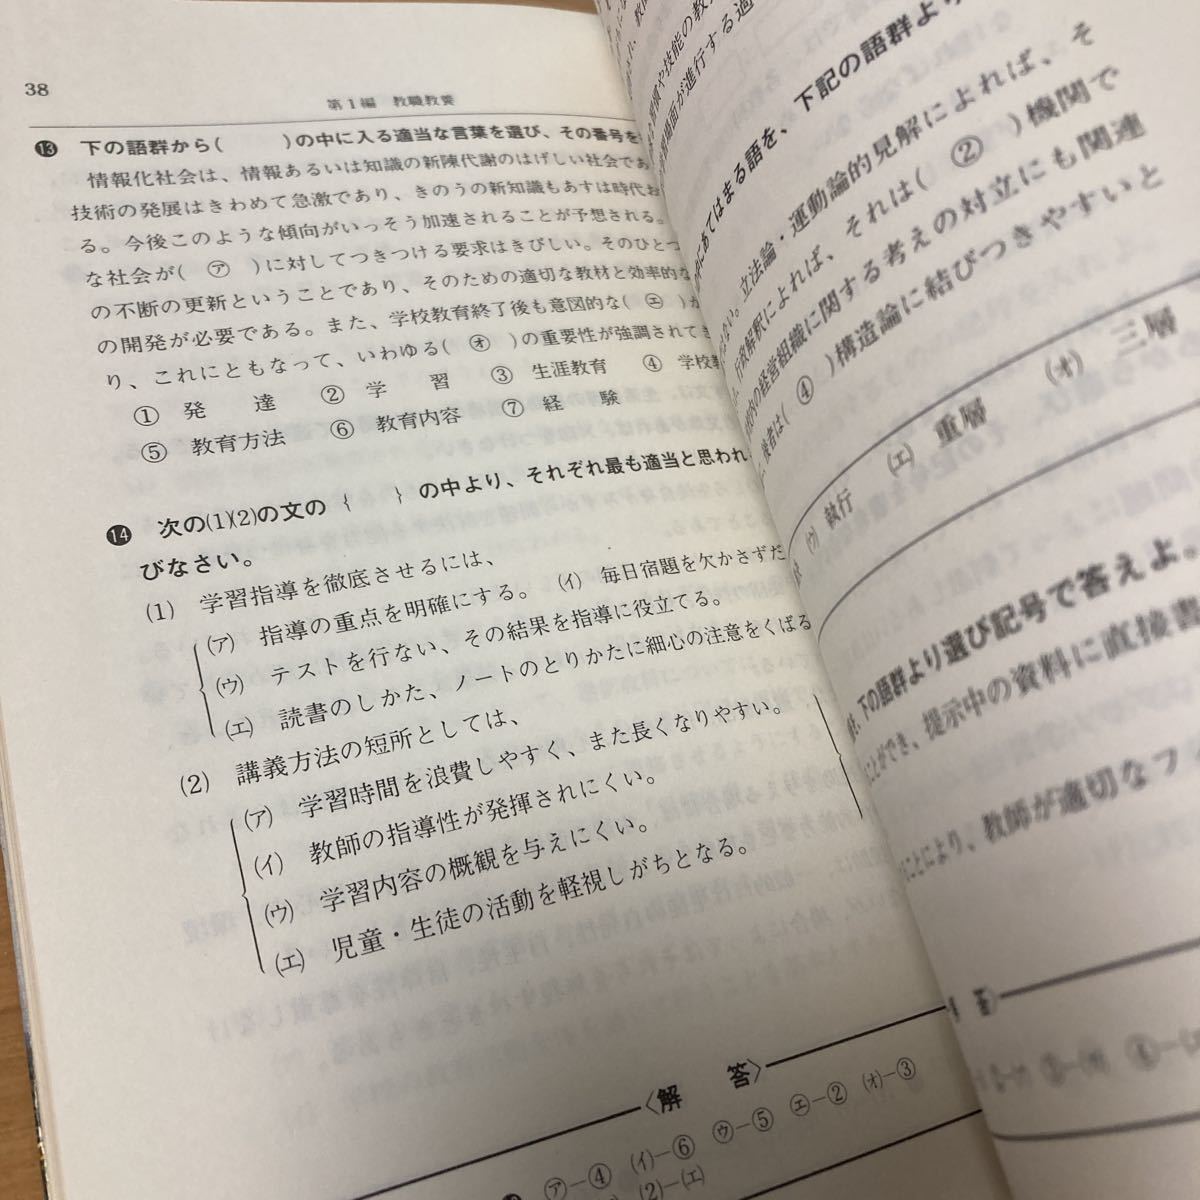 38
第1編 教職教養
⓭ 下の語群から( )の中に入る適当な言葉を選び、その番号を
情報化社会は、情報あるいは知識の新陳代謝のはげしい社会であ
技術の発展はきわめて急激であり、きのうの新知識もあすは時代お
る。今後このような傾向がいっそう加速されることが予想される。
な社会が( ㋐ )に対してつきつける要求はきびしい。そのひとつ
の不断の更新ということであり、そのための適切な教材と効率的な
の開発が必要である。また、学校教育終了後も意図的な( ㋓ )が
り、これにともなって、いわゆる( ㋔ )の重要性が強調されてき
① 発 達 ② 学 習 ③ 生涯教育 ④ 学校教
⑤ 教育方法 ⑥ 教育内容 ⑦ 経 験
⓮ 次の(1)(2)の文の { } の中より、それぞれ最も適当と思われ
びなさい。
(1) 学習指導を徹底させるには、
(ア) 指導の重点を明確にする。 (イ) 毎日宿題を欠かさずだ
(ウ) テストを行ない、その結果を指導に役立てる。
(エ) 読書のしかた、ノートのとりかたに細心の注意をくばる
(2) 講義方法の短所としては、
(ア) 学習時間を浪費しやすく、また長くなりやすい。
(イ) 教師の指導性が発揮されにくい。
(ウ) 学習内容の概観を与えにくい。
(エ) 児童・生徒の活動を軽視しがちとなる。
〈解 答〉
㋐－④ (イ)－⑥ ㋒－⑤ ㋓－② (オ)－③
(2)－(エ)
や技能の教
が進行する適
にあてはまる語を、下記の語群より
ない。立法論・運動論的見解によれば、そ
行政解釈によれば、それは( ② )機関で
内の経営組織に関する考えの対立にも関連
後者は( ④ )構造論に結びつきやすいと
(ウ) 執行 (エ) 重層 (オ) 三層
下の語群より選び記号で答えよ。
ことができ、提示中の資料に直接書
ことにより、教師が適切なフ
答〉